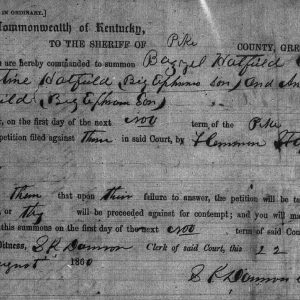 [IN ORDINARY.]
Commonwealth of Kentucky,
TO THE SHERIFF OF Pike COUNTY, GRE
are hereby commanded to summon Bazzel Hatfield
tine Hatfield (Big Ephrams Son) and An
field (Big Ephram Son)
, on the first day of the next term of the Pike
petition filed against them in said Court, by
them that upon their failure to answer, the petition will be ta
or they will be proceeded against for contempt; and you will ma
this summons on the first day of the next term of said Co
Witness, S K Damron Clerk of said Court, this 22
August 1860
S K Damron